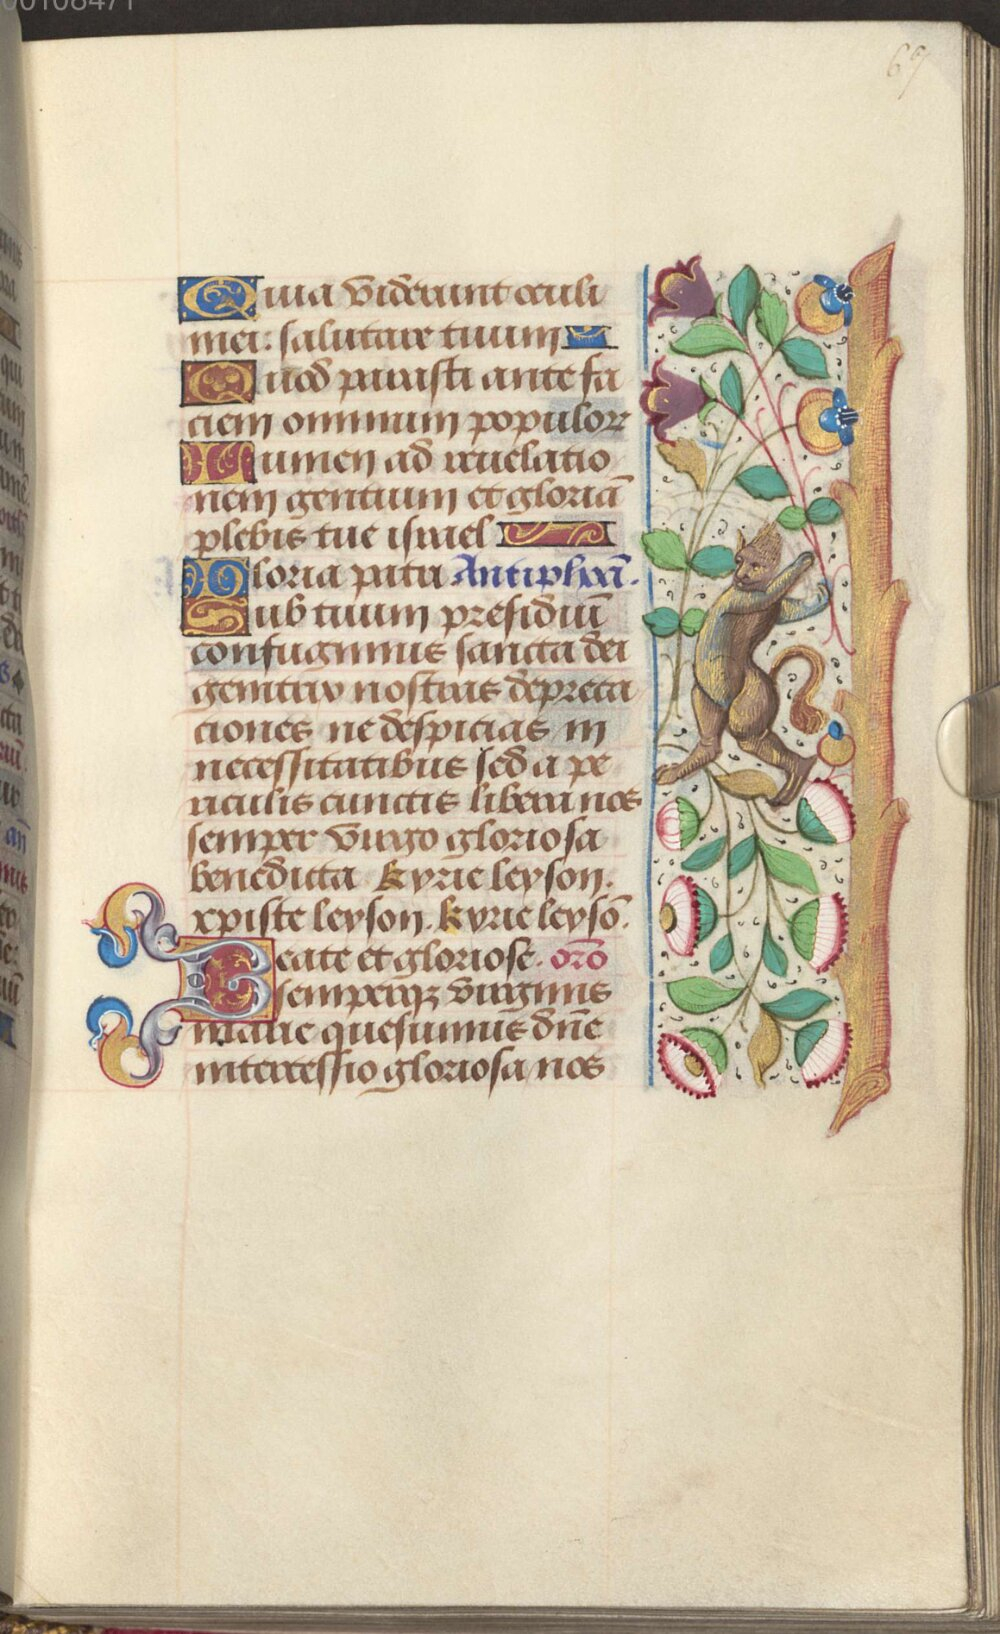 00108471
69
Quia viderunt oculi
mei: salutare tuum
Quod parasti ante fa
ciem omnium populoꝝ
Lumen ad reuelatio
nem gentium et gloriā
plebis tue israel
Gloria patri Antiphōa.
Sub tuum presidiū
confugimus sancta dei
genitrix nostras depreca
ciones ne despicias in
necessitatibus sed a pe
riculis cunctis libera nos
semper virgo gloriosa
benedicta Kyrie leyson.
xpiste leyson. Kyrie leysō.
Beate et gloriose. orō
semperqꝫ virginis
marie quesumus dn̄e
intercessio gloriosa nos